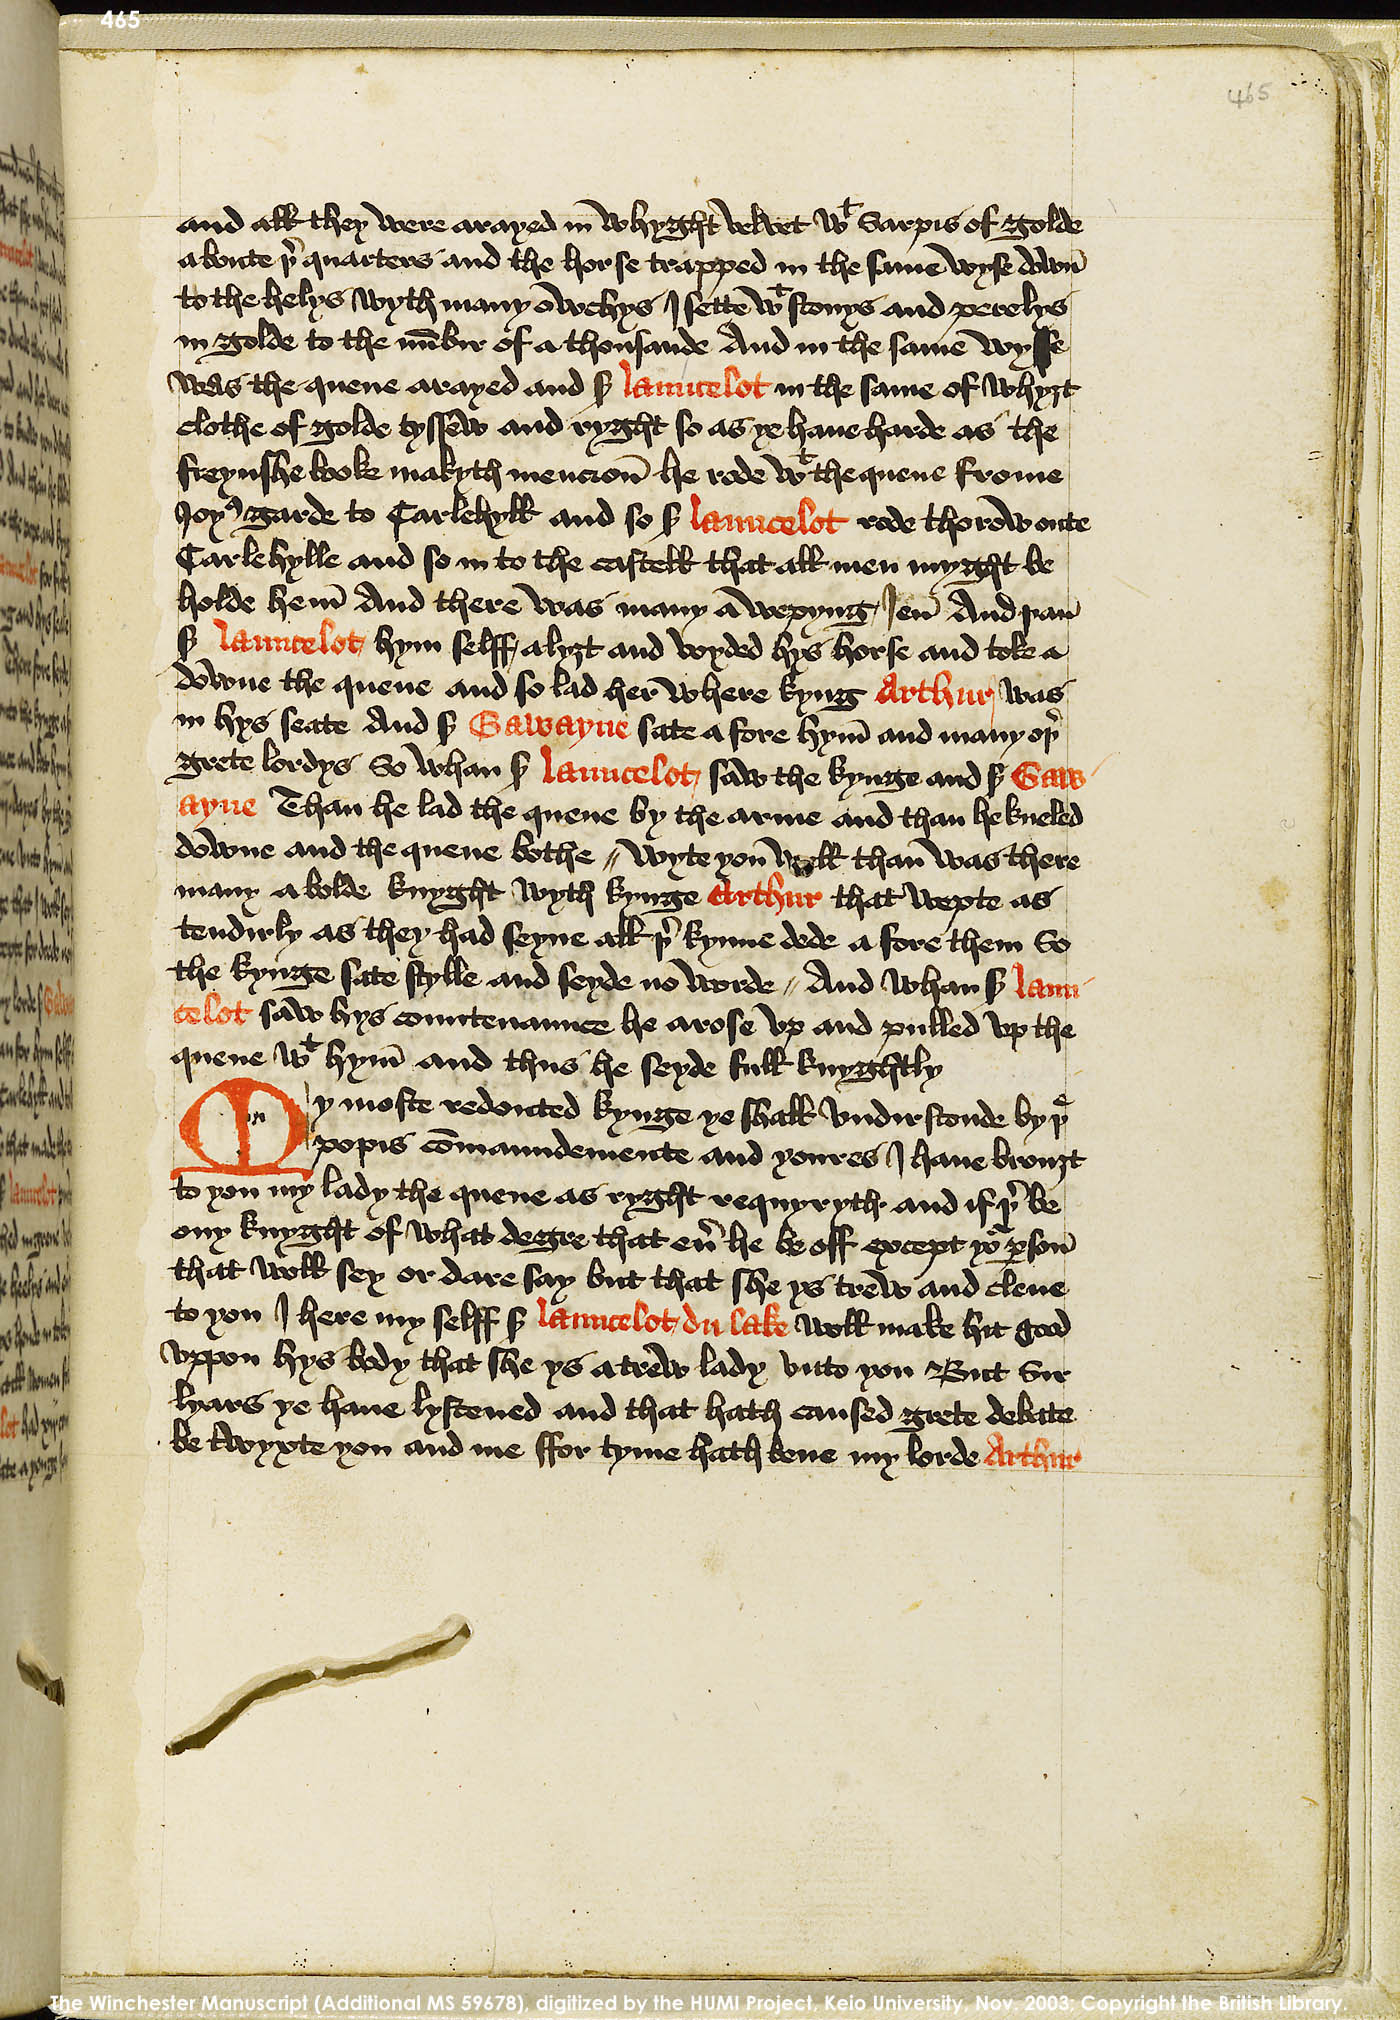 465
465
and all they were arayed in whyght velvet wt Sarpis of golde
aboute þr quarters and the horse trapped in the same wyse down
to the helys wyth many owchys I sette wt stonys and perelys
in golde to the numbir of a thousande And in the same wyse
was the quene arayed and sr launcelot in the same of whyȝt
clothe of golde tyssew and ryght so as ye haue harde as the
freynshe booke makyth mencion he rode wt the quene frome
Joyus garde to Carlehyll and so sr launcelot rode thorow oute
Carlehylle and so in to the castell that all men myght be
holde hem And there was many a wepyng Ien And þan
sr launcelot hym selff alyȝt and voyded hys horse and toke a
downe the quene and so lad her where kyng Arthur was
in hys seate And sr Gawayne sate a fore hym and many oþr
grete lordys So whan sr launcelot saw the kynge and sr Gaw
ayne Than he lad the quene by the arme and than he kneled
downe and the quene bothe // wyte you well than was there
many a bolde knyght wyth kynge Arthur that wepte as
tendirly as they had seyne all þr kynne dede a fore them So
the kynge sate stylle and seyde no worde // And whan sr laun
celot saw hys countenaunce he arose vp and pulled vp the
quene wt hym and thus he seyde full knyghtly
My moste redouted kynge ye shall vndirstonde by yor
popis commaundemente and youres I haue brouȝt
to you my lady the quene as ryght requyryth and if þr be
ony knyght of what degre that eur he be off except yor person
that woll sey or dare say but that she ys trew and clene
to you I here my selff sr launcelot du lake woll make hit good
vppon hys body that she ys a trew lady vnto you But Sir
lyars ye haue lystened and that hath caused grete debate
be twyxte you and me ffor tyme hath bene my lorde Arthur
The Winchester Manuscript (Additional MS 59678), digitized by the HUMI Project, Keio University, Nov. 2003; Copyright the British Library.